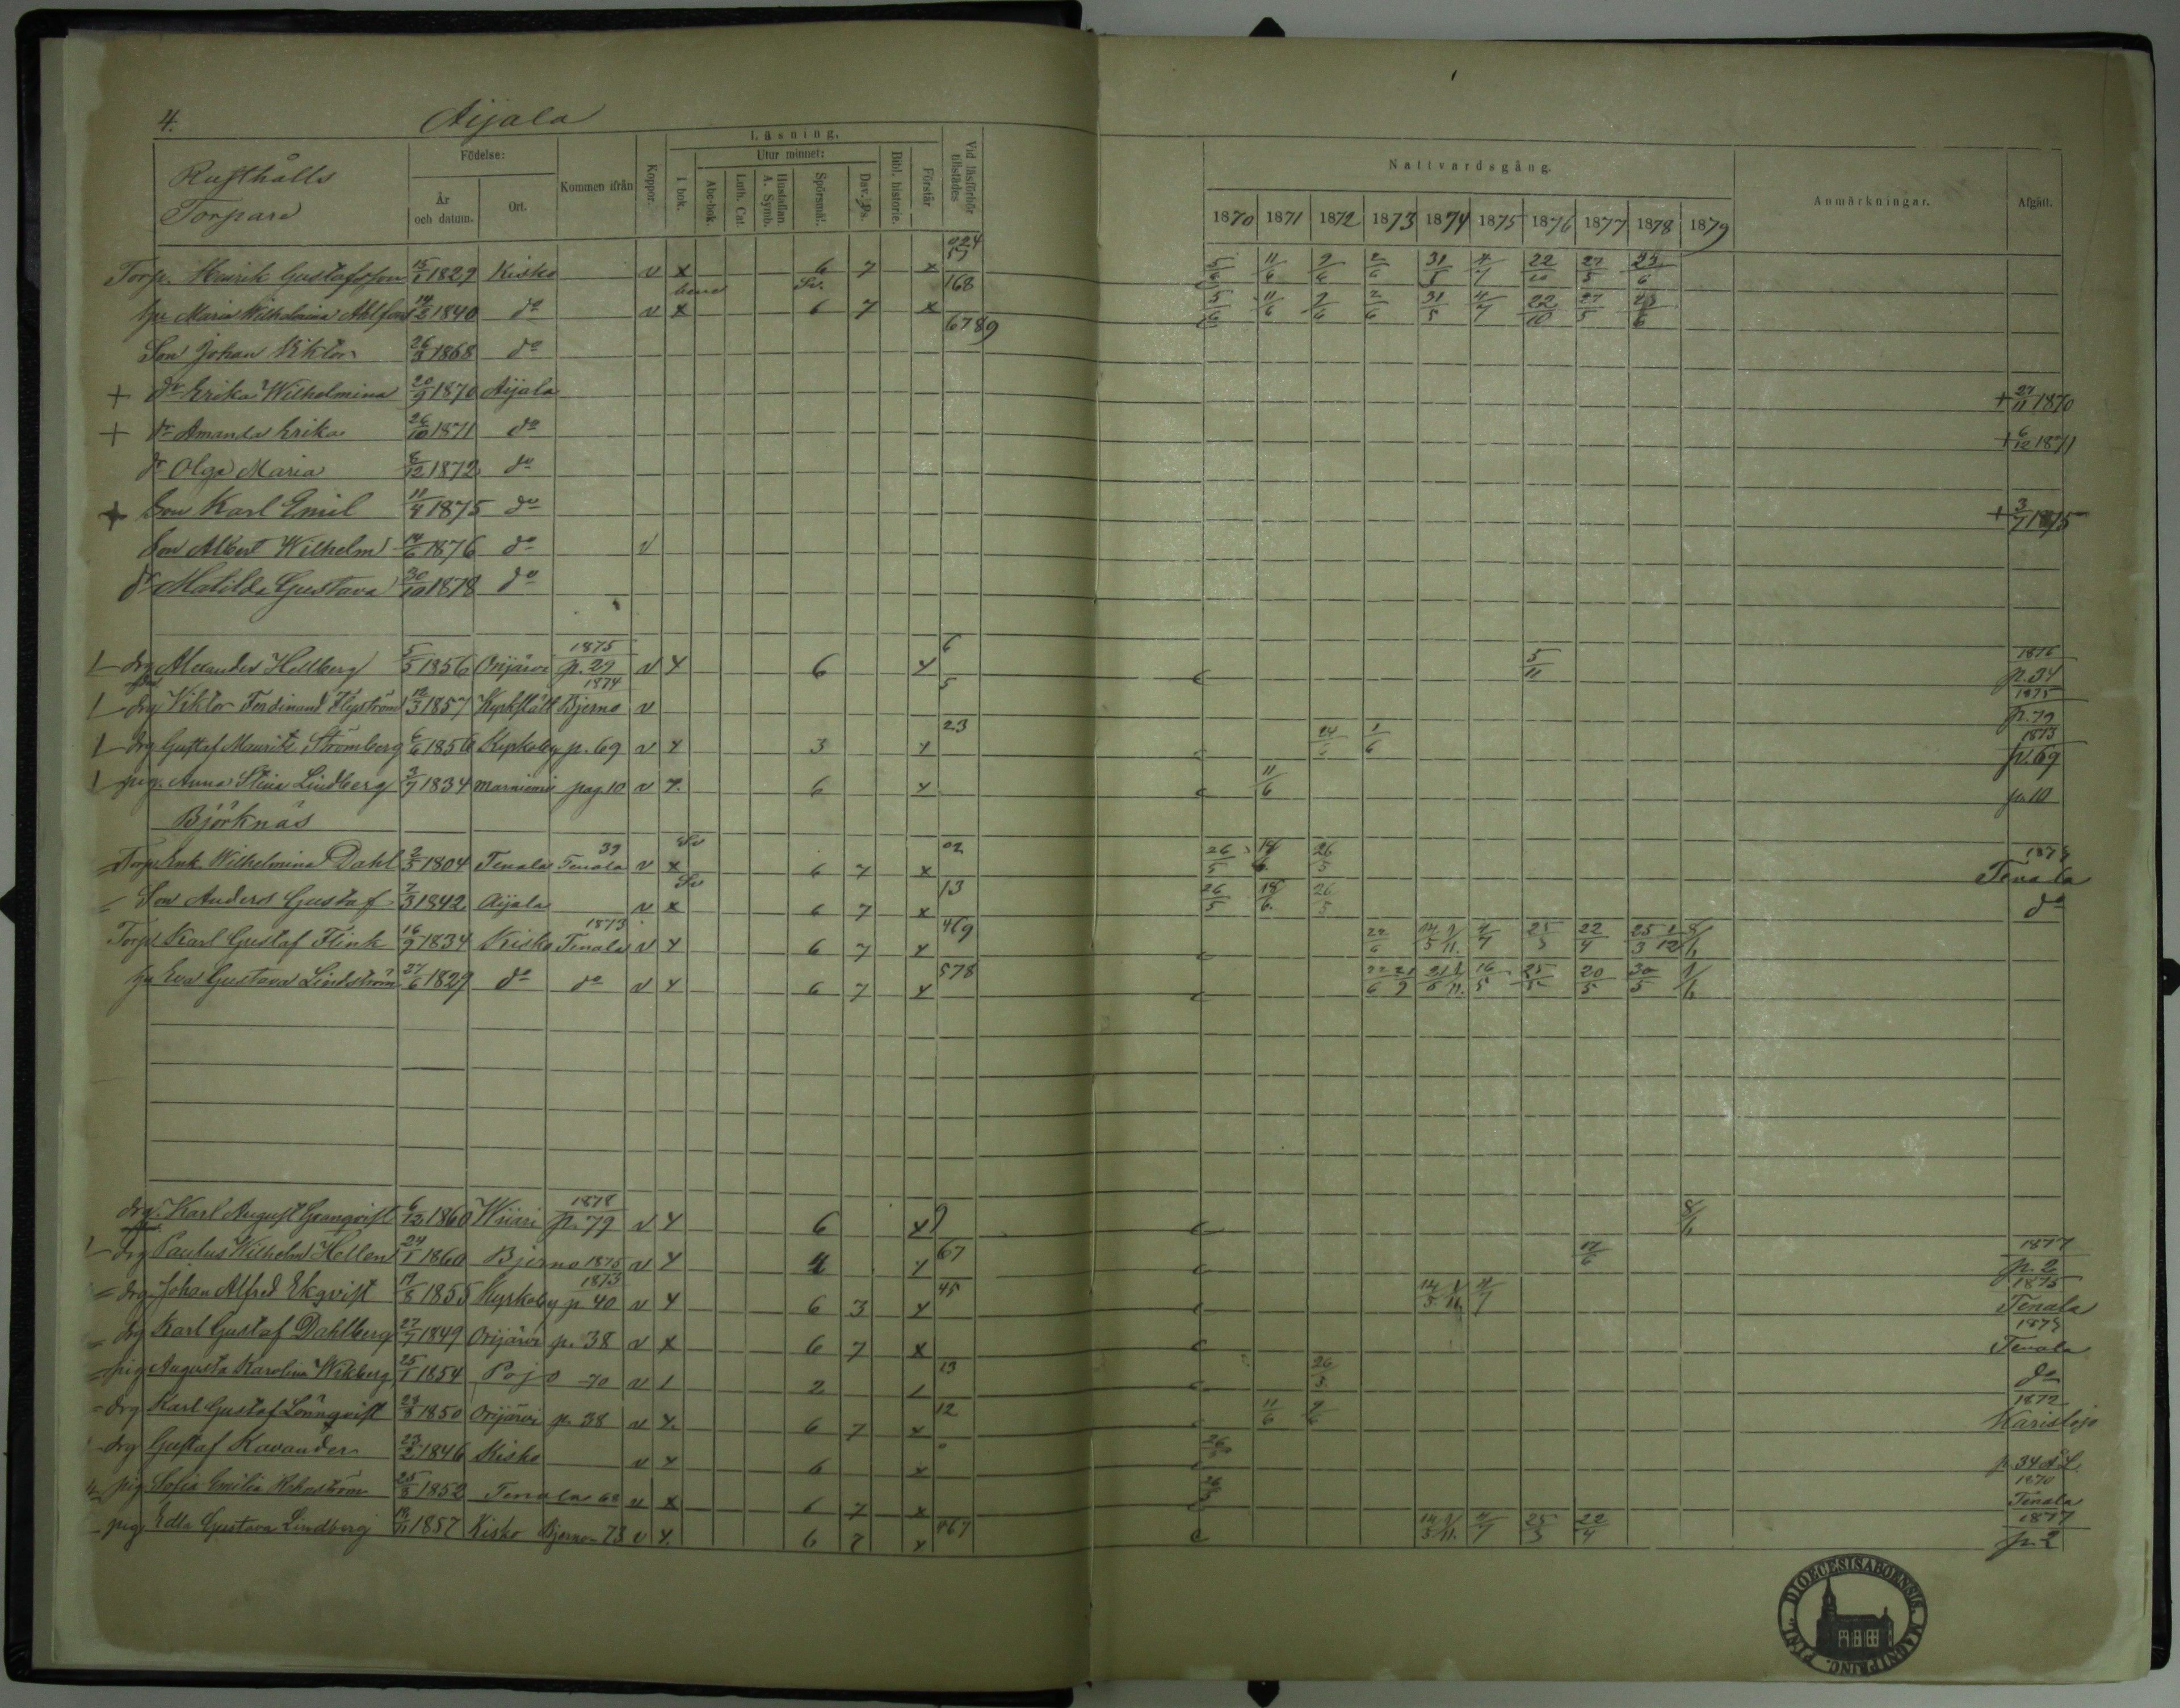 4. Aijala
Rusthålls
Torpare
Födelse:
År och datum.
Ort.
Kommen ifrån
Koppor.
Läsning.
I bok.
Utur minnet:
Abc-bok.
Luth. Cat.
Hustaflan A. Symb.
Spörsmål.
Dav. Ps.
Bibl. historie.
Förstår
Vid läsförhör tillstädes
Nattvardsgång.
1870 1871 1872 1873 1874 1875 1876 1877 1878 1879
Anmärkningar.
Afgått.
Torp. Henrik Gustafsson 15/1 1829 Kisko v x 6 7 x 5/6 11/6 9/6 2/6 31/5 4/7 22/10 27/5 23/6
hu Maria Wilhelmina 1840 do v x Sv. 6 7 x 168 5/6 11/6 9/6 2/6 31/5 4/7 22/10 27/5 23/6
Son Johan Viktor 26/3 1868 do 6789
+ dr Erika Wilhelmina 20/9 1870 Aijala + 27/11 1870
+ dr Amanda Erika 26/10 1871 do + 6/12 1871
dr Olga Maria 8/12 1872 do
+ Son Karl Emil 11/4 1875 do + 3/7 1875
Son Albert Wilhelm 14/6 1876 do v
dr Matilda Gustava 30/10 1878 do
drg Alexander Hellberg 5/5 1856 Orijärvi 1875 p. 29 v x 6 x 6 5/11 1876 p. 34
drg Viktor Ferdinand 1857 Kyrkslätt 1874 Bjerno v 5 1875 p. 79
drg Gustaf Maurits Strömberg 6/6 1856 Kyrkoby p. 69 v x 3 x 23 1/6 1873 p. 69
pig. Anna Stina Lindberg 3/7 1834 Marniemi pag. 10 v x 6 x 11/6 p. 10
Björknäs
Torp. Enk. Wilhelmina Dahl 2/5 1804 Tenala 39 Tenala v x Sv 6 7 x 02 26/5 18/6 26/5 Tenala
Son Anders Gustaf 7/3 1842 Aijala v x Sv 6 7 x 13 26/5 18/6 26/5 do
Torp. Karl Gustaf Flink 16/9 1834 Kisko 1873 Tenala v x 6 7 x 469 22/6 4/7 25/3 22/4
hu Eva Gustava Lindström 27/6 1829 do do v x 6 7 x 578 16/5 25/5 20/5 30/5
drg. Karl August Granqvist 6/12 1860 Wiiari 1878 p. 79 v x 6 x 9 8/1
drg Paulus Wilhelm Hellen 24/1 1860 Bjerno 1875 v x 4 x 67 17/6 1877 p. 2
drg Johan Alfred Ekqvist 1855 Kyrkoby 1873 p. 40 v x 6 3 x 45 4/7 1875 Tenala
drg Karl Gustaf Dahlberg 27/7 1849 Orijärvi p. 38 v x 6 7 x Tenala
pig Augusta Karolina Wikberg 25/1 1854 Pojo 70 v 1 2 1 13 26/5 do
drg Karl Gustaf Lönnqvist 1850 Orijärvi p. 38 v x 6 7 x 12 11/6 9/6 1872 Karislojo
drg Gustaf Kavander 23/2 1846 Kisko v x 6 x 0 26/5 p. 34
pig Sofia Emilia 25/5 1852 Tenala v x 6 7 x 1870 Tenala
pig Edla Gustava Lindberg 1857 Kisko Bjerno 73 v x 6 7 x 467 4/7 25/3 22/4 1877 p. 2
DIOECESIS ABOENSIS. MAGNI PRINC. FINL.